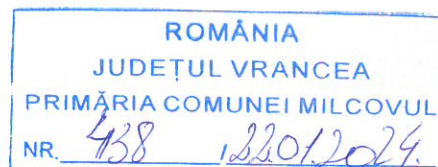 ROMÂNIA
JUDEȚUL VRANCEA
PRIMĂRIA COMUNEI MILCOVUL
NR. 438 / 22.01.2024.